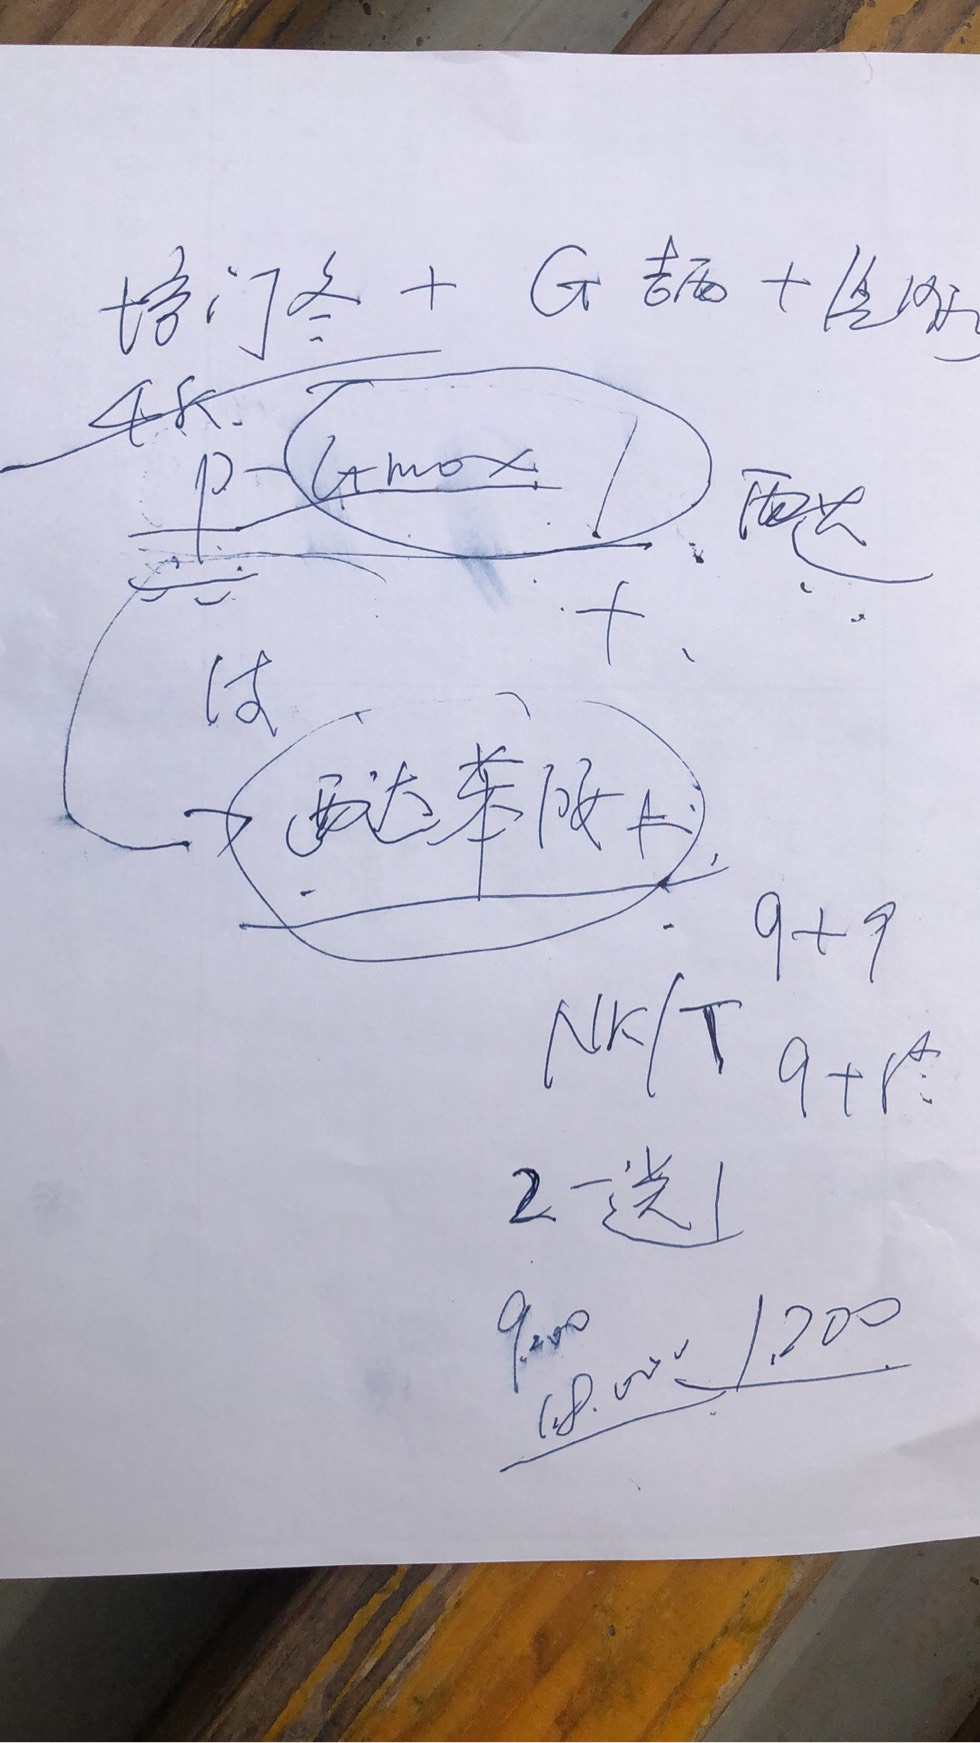 培门冬 + G 吉西 +
4K.
P-Gmox
西达
+
西达苯胺 +
9+9
NK/T
9+
2-选1
9.200
18.000 1.200